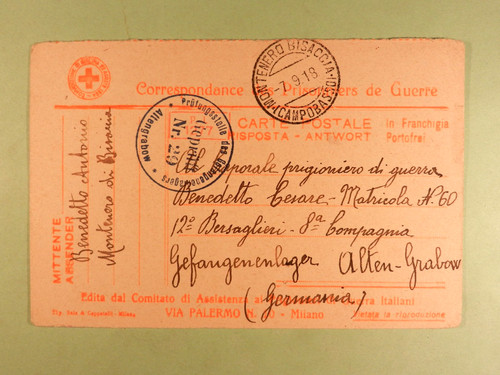 MONTENERO BISACCIA (CAMPOBASSO)
7.9.18
Correspondance des Prisonniers de Guerre
CARTE POSTALE
RISPOSTA - ANTWORT
In Franchigia
Portofrei
Prüfungsstelle des Gefangenenlagers
Geprüft
Nr. 29
Altengrabow
MITTENTE
ABSENDER
Benedetto Antonio
Montenero di Bisaccia
Al Caporale prigioniero di guerra
Benedetto Cesare - Matricola N. 60
12º Bersaglieri - 8ª Compagnia
Gefangenenlager Alten-Grabow
(Germania)
Edita dal Comitato di Assistenza ai Guerra Italiani
VIA PALERMO N. - Milano
Vietata la riproduzione